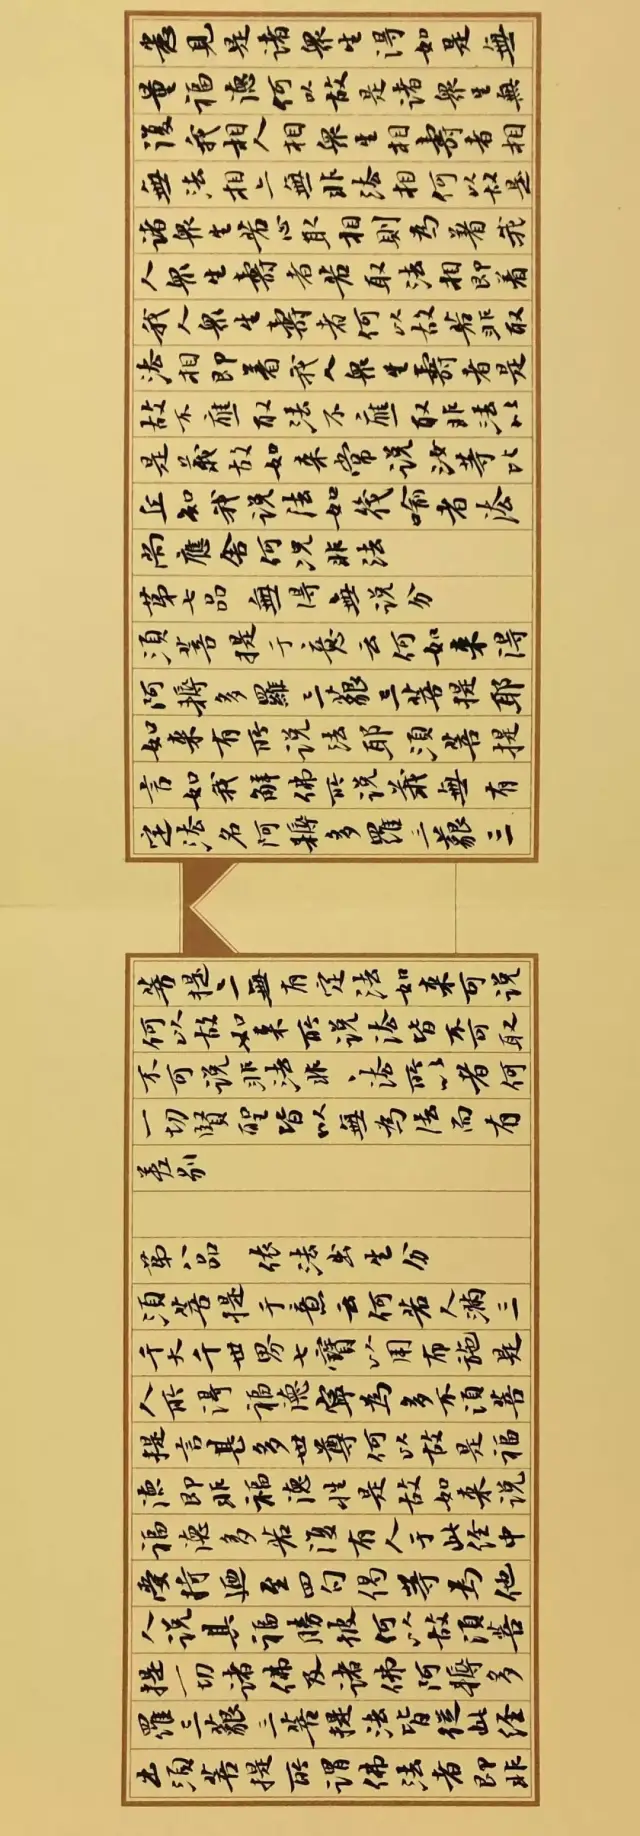 悉見是諸眾生得如是無
量福德何以故是諸眾生無
復我相人相眾生相壽者相
無法相亦無非法相何以故是
諸眾生若心取相則為著我
人眾生壽者若取法相即著
我人眾生壽者何以故若非取
法相即著我人眾生壽者是
故不應取法不應取非法以
是義故如來常說汝等比
丘知我說法如筏喻者法
尚應舍何況非法
第七品 無得無說分
須菩提于意云何如來得
阿耨多羅三藐三菩提耶
如來有所說法耶須菩提
言如我解佛所說義無有
定法名阿耨多羅三藐三
菩提亦無有定法如來可說
何以故如來所說法皆不可取
不可說非法非、法所以者何
一切賢聖皆以無為法而有
差別
第八品 依法出生分
須菩提于意云何若人滿三
千大千世界七寶以用布施是
人所得福德寧為多不須菩
提言甚多世尊何以故是福
德即非福德性是故如來說
福德多若復有人于此經中
受持乃至四句偈等為他
人說其福勝彼何以故須菩
提一切諸佛及諸佛阿耨多
羅三藐三菩提法皆從此經
出須菩提所謂佛法者即非